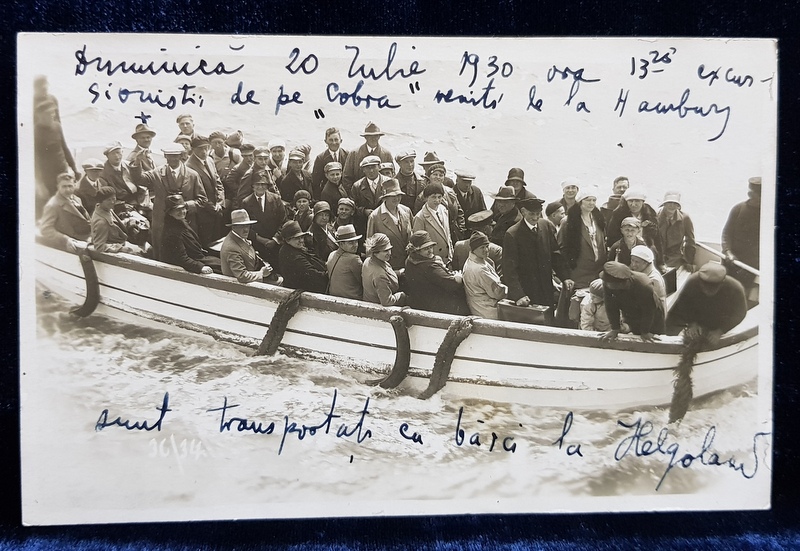 Duminică 20 Iulie 1930 ora 13²⁵ excur-
sioniști, de pe "Cobra" veniți de la Hamburg
sunt transportați cu bărci la Helgoland
16/14